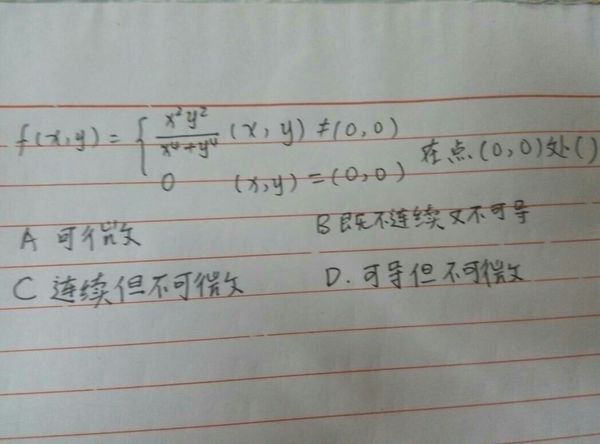 f(x,y) = { x²y² / x⁴+y⁴ (x, y) ≠ (0,0)
0 (x,y) = (0,0) 在点(0,0)处()
A 可微 B 既不连续又不可导
C 连续但不可微 D. 可导但不可微